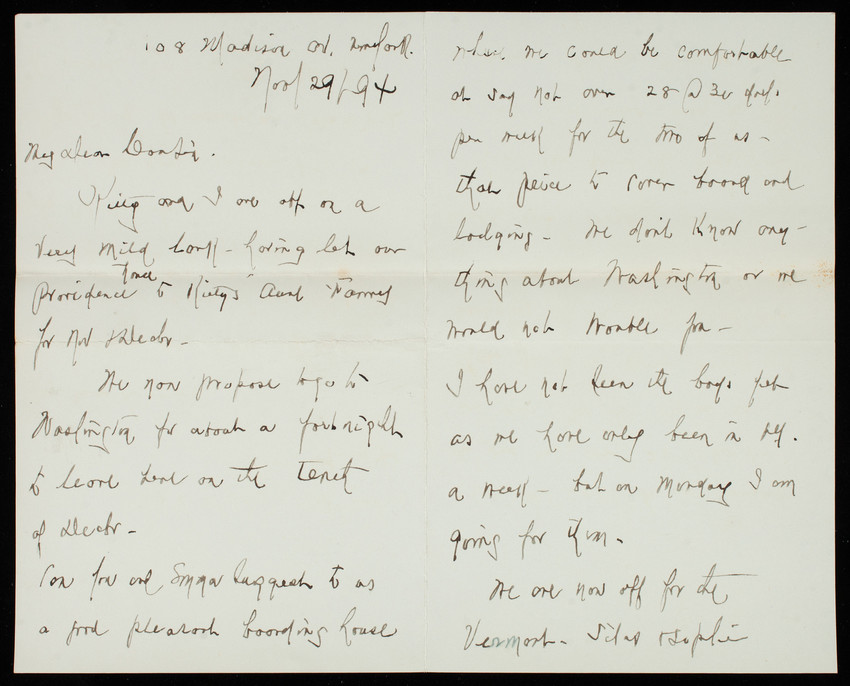 108 Madison Av. New York.
Nov 29/94
My dear Cousin.
Kitty and I are off on a
very mild lark - having let our
Providence house to Kitty's Aunt Fanny
for Nov & Decbr -
We now propose to go to
Washington for about a fortnight
to leave here on the tenth
of Decbr -
Can you and Emma suggest to us
a good pleasant boarding house
where we could be comfortable
at say not over 28 @ 30 dols.
per week for the two of us -
that price to cover board and
lodging - We don't know any-
thing about Washington or we
would not trouble you -
I have not seen the boys yet
as we have only been in N.Y.
a week - but on Monday I am
going for them -
We are now off for the
Vermont - Silas & Sophie